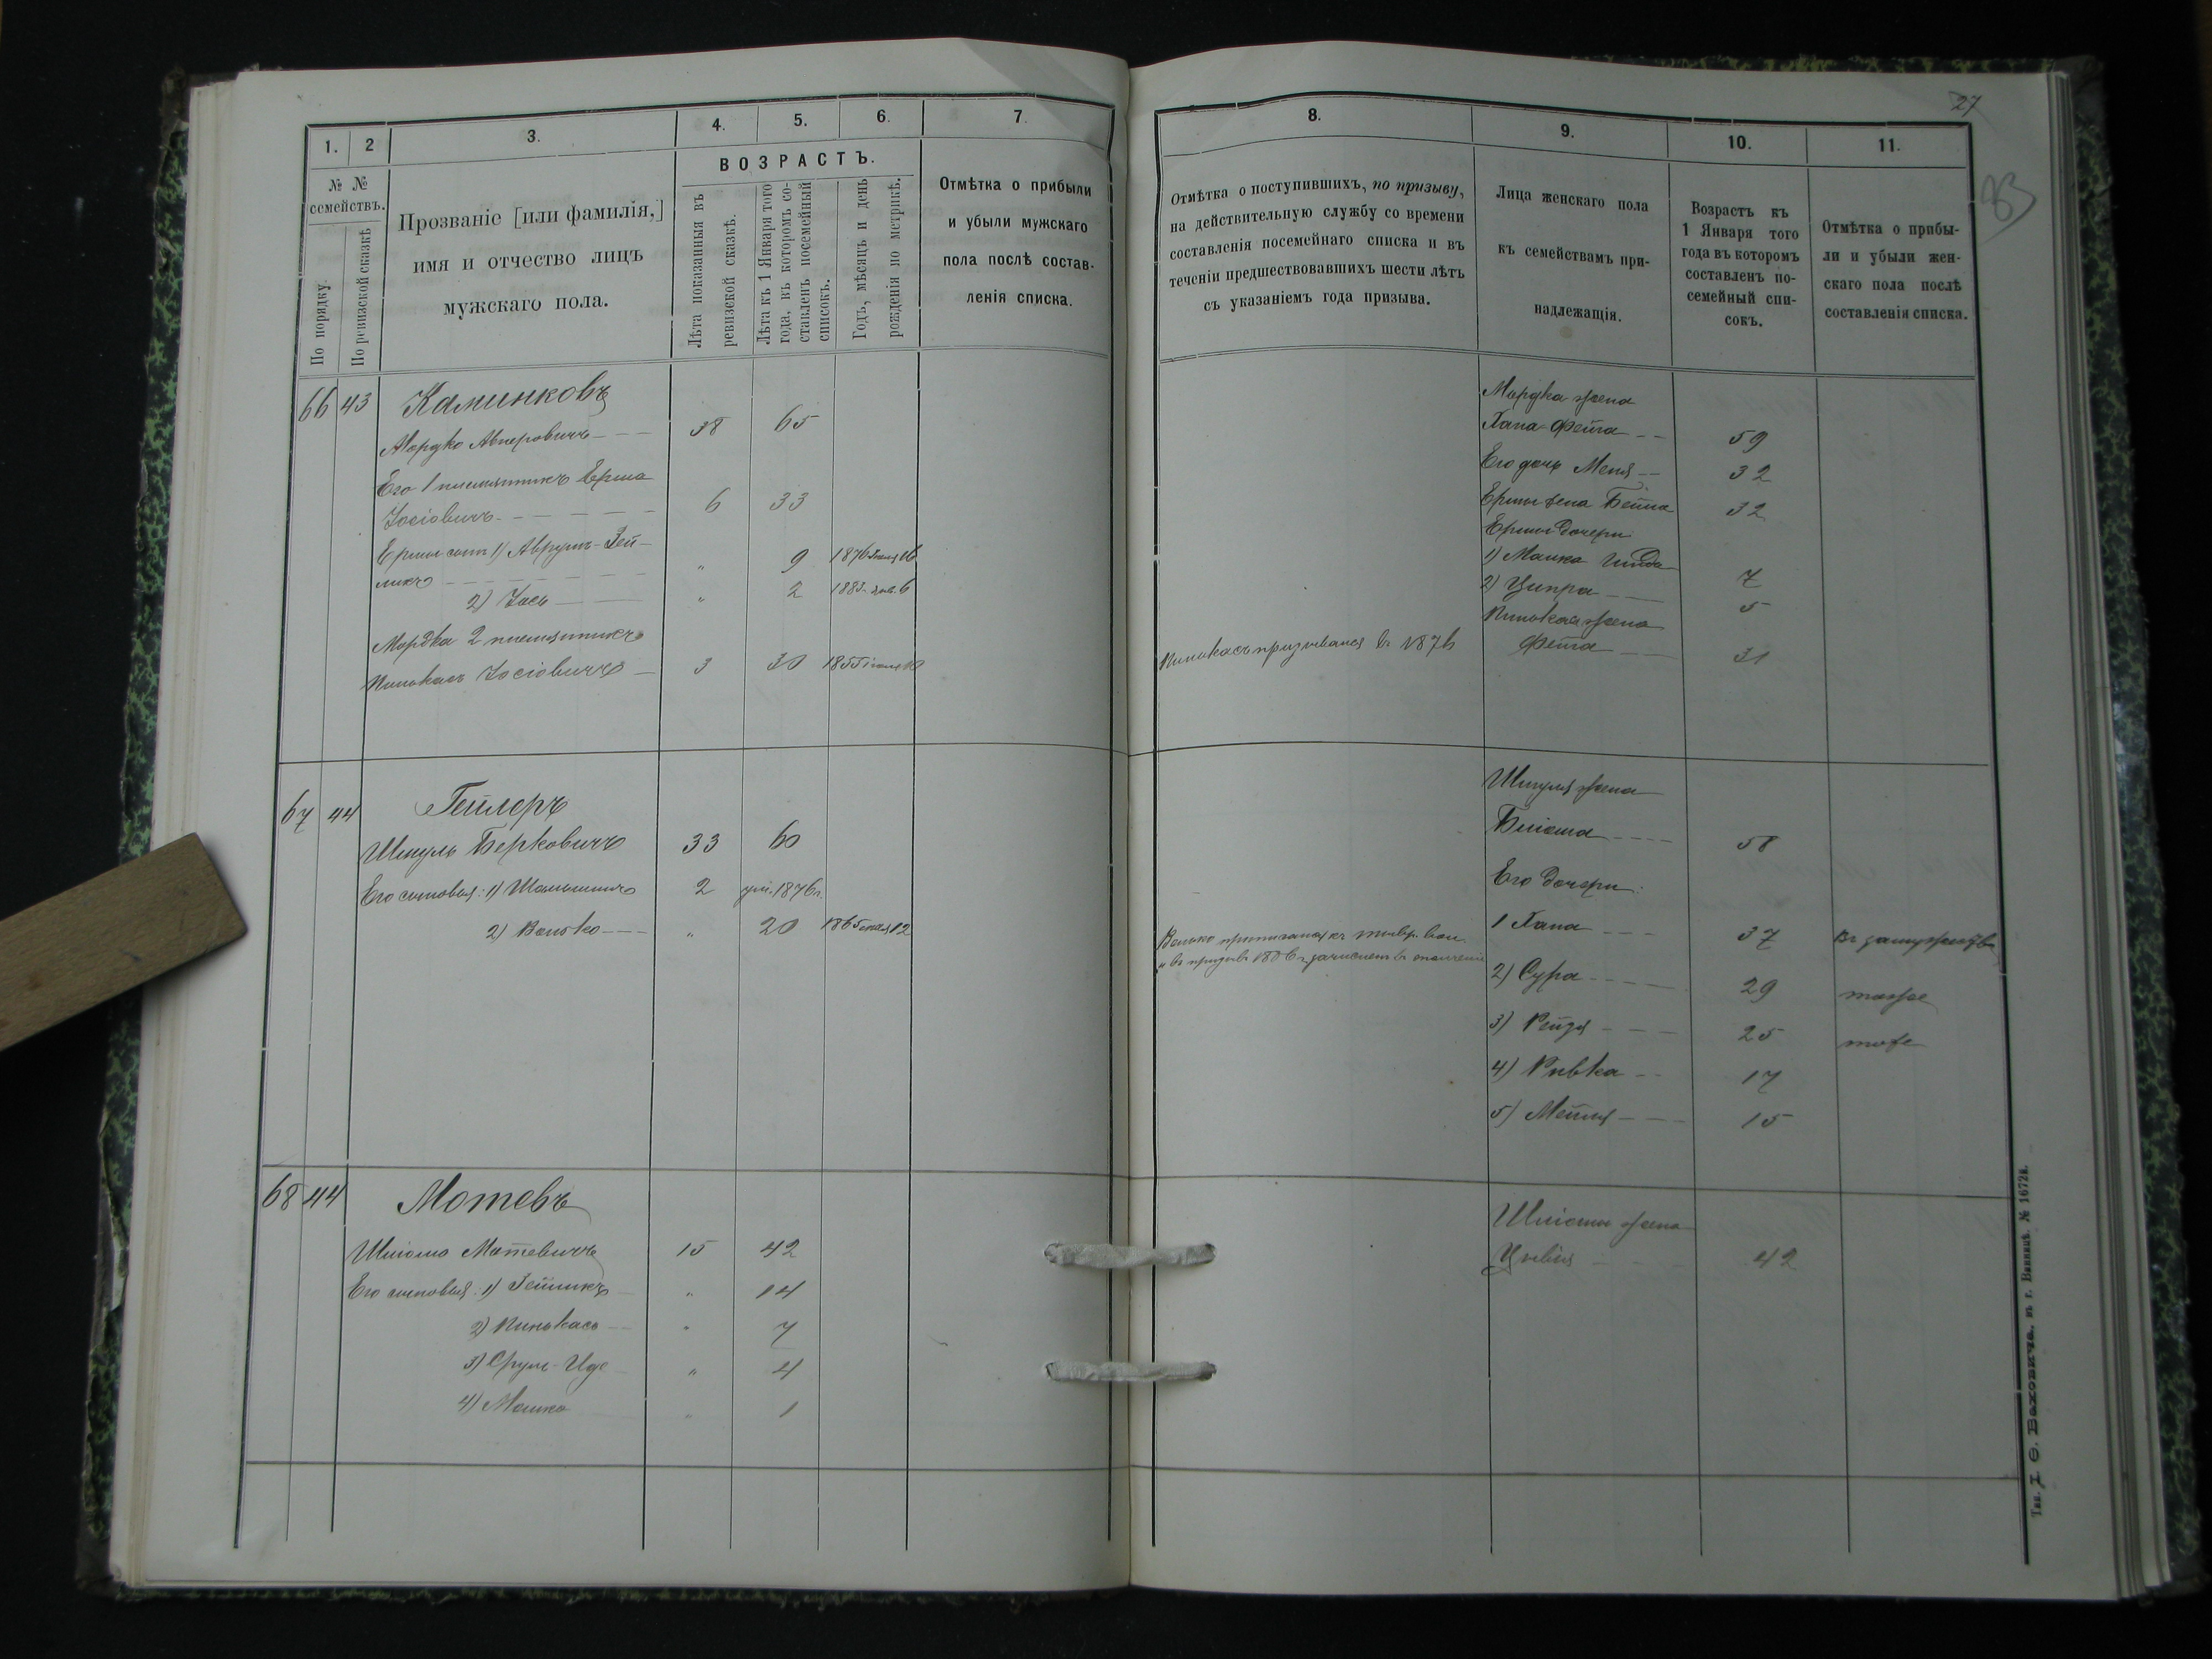 1.
2
3.
4.
5.
6.
7.
№ №
семействъ.
По порядку.
По ревизской сказкѣ
Прозваніе [или фамилія,]
имя и отчество лицъ
мужскаго пола.
ВОЗРАСТЪ.
Лѣта показанныя въ
ревизской сказкѣ.
Лѣта къ 1 Января того
года, въ которомъ со-
ставленъ посемейный
списокъ.
Годъ, мѣсяцъ и день
рожденія по метрикѣ.
Отмѣтка о прибыли
и убыли мужскаго
пола послѣ состав-
ленія списка.
66 43 Каминковъ
Мордко Авнеровичъ 38 65
Его 1 племянникъ Ерша
Іосіовичъ 6 33
Ерши сын 1) Аврумъ-Зей-
ликъ „ 9 1876 16
2) Іось „ 2 1883 янв. 6
Мордка 2 племянникъ
Пинькасъ Іосіовичъ 3 30 1855
67 44 Гейлеръ
Шмуль Берковичъ 33 60
Его сыновья: 1) 2 ум. 1876 г.
2) Велько „ 20 1865 12
68 44 Мотевъ
Шліома Мотевичъ 15 42
Его сыновья: 1) Зейликъ „ 14
2) Пинькась „ 7
3) Срулъ-Иде „ 4
4) Мошко „ 1
27
83
8.
9.
10.
11.
Отмѣтка о поступившихъ, по призыву,
на действительную службу со времени
составленія посемейнаго списка и въ
теченіи предшествовавшихъ шести лѣтъ
съ указаніемъ года призыва.
Лица женскаго пола
къ семействамъ при-
надлежащія.
Возрастъ къ
1 Января того
года въ которомъ
составленъ по-
семейный спи-
сокъ.
Отмѣтка о прибы-
ли и убыли жен-
скаго пола послѣ
составленія списка.
Мордка жена
Хана-Фейга 59
Его дочь Меня 32
Ерши жена Бейла 32
Ерши дочери:
1) Малка 7
2) Ципра 5
Пинькася жена
Пинькасъ призывался въ 1876 Фейга 31
Шмуля жена
Бліома 58
Его дочери:
1 Хана 37 Въ замужествѣ
Велько
въ призывъ 1886 г. зачисленъ въ ополченіе
2) Сура 29 тоже
3) Рейзя 25 тоже
4) Ривка 17
5) Мейля 15
Шліомы жена
Цивія 42
Тип. въ г. Винницѣ. № 1672в.